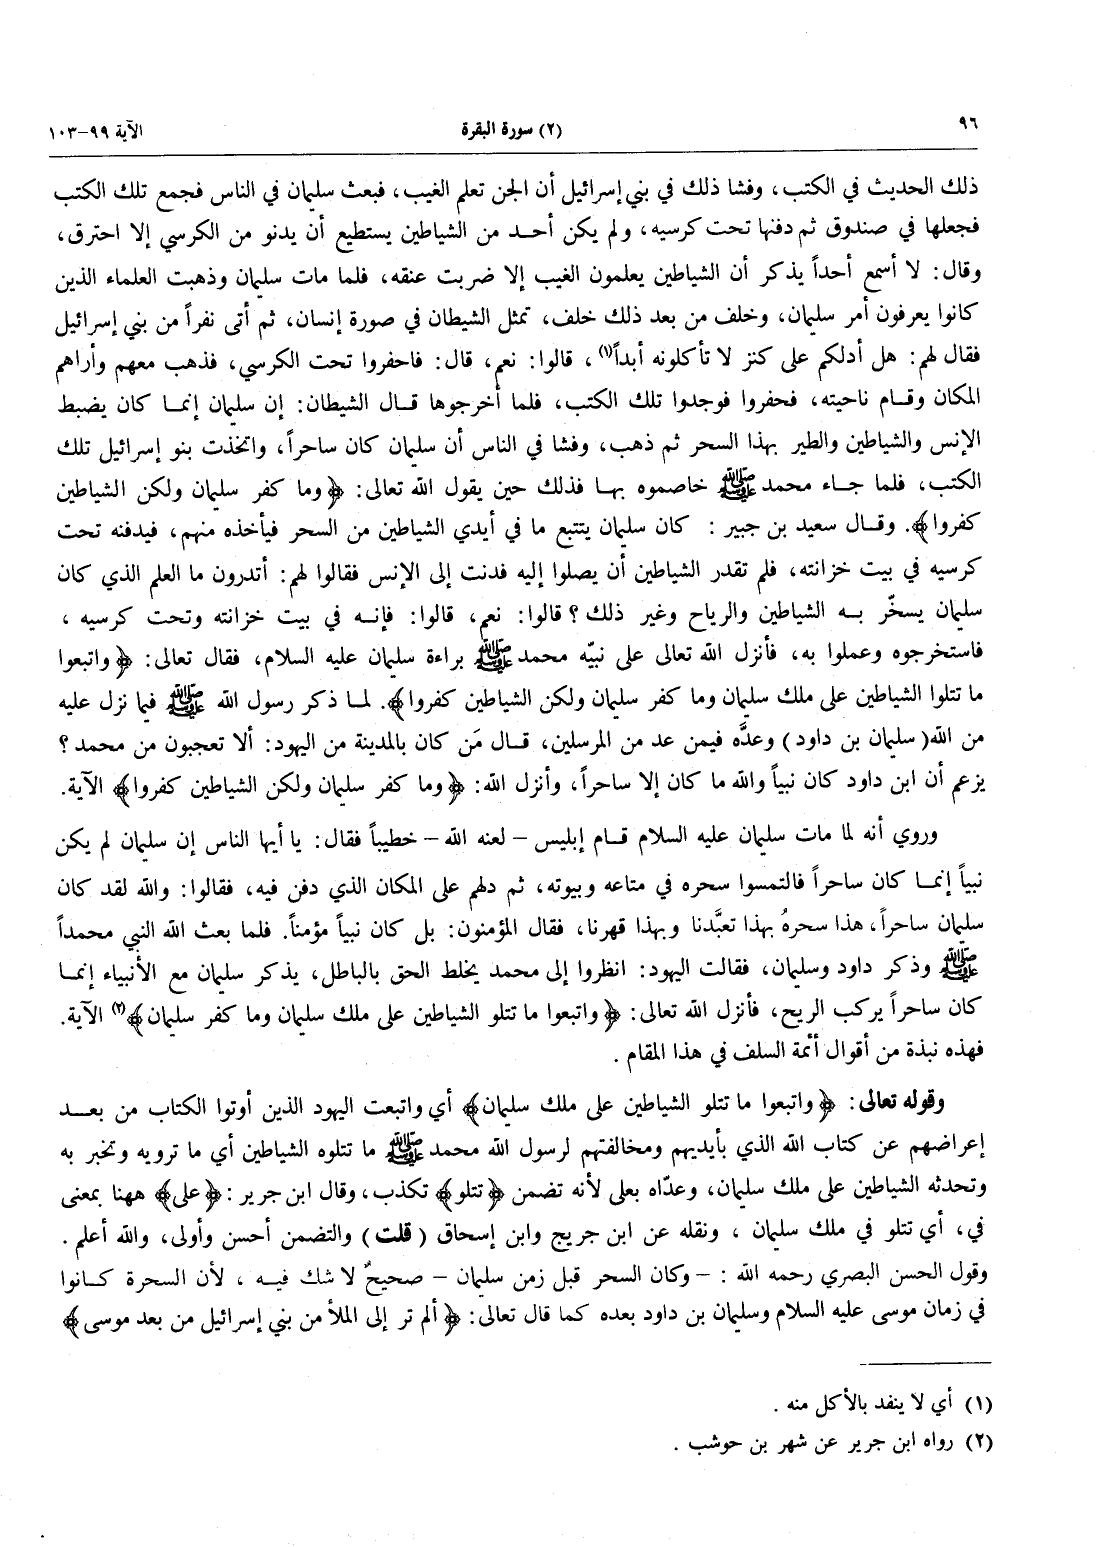 ٩٦
(٢) سورة البقرة
الآية ٩٩-١٠٣
ذلك الحديث في الكتب، وفشا ذلك في بني إسرائيل أن الجن تعلم الغيب، فبعث سليمان في الناس فجمع تلك الكتب
فجعلها في صندوق ثم دفنها تحت كرسيه، ولم يكن أحد من الشياطين يستطيع أن يدنو من الكرسي إلا احترق،
وقال: لا أسمع أحداً يذكر أن الشياطين يعلمون الغيب إلا ضربت عنقه، فلما مات سليمان وذهبت العلماء الذين
كانوا يعرفون أمر سليمان، وخلف من بعد ذلك خلف، تمثل الشيطان في صورة إنسان، ثم أتى نفراً من بني إسرائيل
فقال لهم: هل أدلكم على كنز لا تأكلونه أبداً(١)، قالوا: نعم، قال: فاحفروا تحت الكرسي، فذهب معهم وأراهم
المكان وقام ناحيته، فحفروا فوجدوا تلك الكتب، فلما أخرجوها قال الشيطان: إن سليمان إنما كان يضبط
الإنس والشياطين والطير بهذا السحر ثم ذهب، وفشا في الناس أن سليمان كان ساحراً، واتخذت بنو إسرائيل تلك
الكتب، فلما جاء محمد ﷺ خاصموه بها فذلك حين يقول الله تعالى: ﴿وما كفر سليمان ولكن الشياطين
كفروا﴾. وقال سعيد بن جبير : كان سليمان يتتبع ما في أيدي الشياطين من السحر فيأخذه منهم، فيدفنه تحت
كرسيه في بيت خزانته، فلم تقدر الشياطين أن يصلوا إليه فدنت إلى الإنس فقالوا لهم: أتدرون ما العلم الذي كان
سليمان يسخّر به الشياطين والرياح وغير ذلك؟ قالوا: نعم، قالوا: فإنه في بيت خزانته وتحت كرسيه ،
فاستخرجوه وعملوا به، فأنزل الله تعالى على نبيّه محمد ﷺ براءة سليمان عليه السلام، فقال تعالى: ﴿واتبعوا
ما تتلوا الشياطين على ملك سليمان وما كفر سليمان ولكن الشياطين كفروا﴾. لما ذكر رسول الله ﷺ فيما نزل عليه
من الله (سليمان بن داود) وعدَّه فيمن عد من المرسلين، قال مَن كان بالمدينة من اليهود: ألا تعجبون من محمد؟
يزعم أن ابن داود كان نبياً والله ما كان إلا ساحراً، وأنزل الله: ﴿وما كفر سليمان ولكن الشياطين كفروا﴾ الآية.
وروي أنه لما مات سليمان عليه السلام قام إبليس - لعنه الله - خطيباً فقال: يا أيها الناس إن سليمان لم يكن
نبياً إنما كان ساحراً فالتمسوا سحره في متاعه وبيوته، ثم دلهم على المكان الذي دفن فيه، فقالوا: والله لقد كان
سليمان ساحراً، هذا سحرهُ بهذا تعبَّدنا وبهذا قهرنا، فقال المؤمنون: بل كان نبياً مؤمناً. فلما بعث الله النبي محمداً
ﷺ وذكر داود وسليمان، فقالت اليهود: انظروا إلى محمد يخلط الحق بالباطل، يذكر سليمان مع الأنبياء إنما
كان ساحراً يركب الريح، فأنزل الله تعالى: ﴿واتبعوا ما تتلو الشياطين على ملك سليمان وما كفر سليمان﴾(٢) الآية.
فهذه نبذة من أقوال أئمة السلف في هذا المقام .
وقوله تعالى: ﴿واتبعوا ما تتلو الشياطين على ملك سليمان﴾ أي واتبعت اليهود الذين أوتوا الكتاب من بعد
إعراضهم عن كتاب الله الذي بأيديهم ومخالفتهم لرسول الله محمد ﷺ ما تتلوه الشياطين أي ما ترويه وتخبر به
وتحدثه الشياطين على ملك سليمان، وعدّاه بعلى لأنه تضمن ﴿تتلو﴾ تكذب، وقال ابن جرير: ﴿على﴾ ههنا بمعنى
في، أي تتلو في ملك سليمان ، ونقله عن ابن جريج وابن إسحاق (قلت) والتضمن أحسن وأولى، والله أعلم .
وقول الحسن البصري رحمه الله : - وكان السحر قبل زمن سليمان - صحيحٌ لا شك فيه ، لأن السحرة كانوا
في زمان موسى عليه السلام وسليمان بن داود بعده كما قال تعالى: ﴿ألم تر إلى الملأ من بني إسرائيل من بعد موسى﴾
(١) أي لا ينفد بالأكل منه .
(٢) رواه ابن جرير عن شهر بن حوشب .